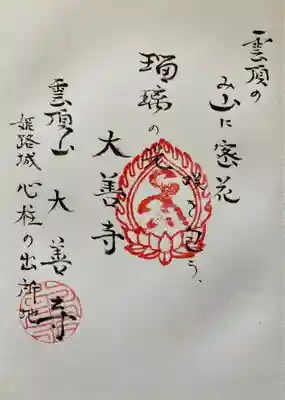 雲頂の
み山に 花
瑠璃の光 を包う、
大善寺
雲頂山 大善寺
姫路城 心柱の出御地